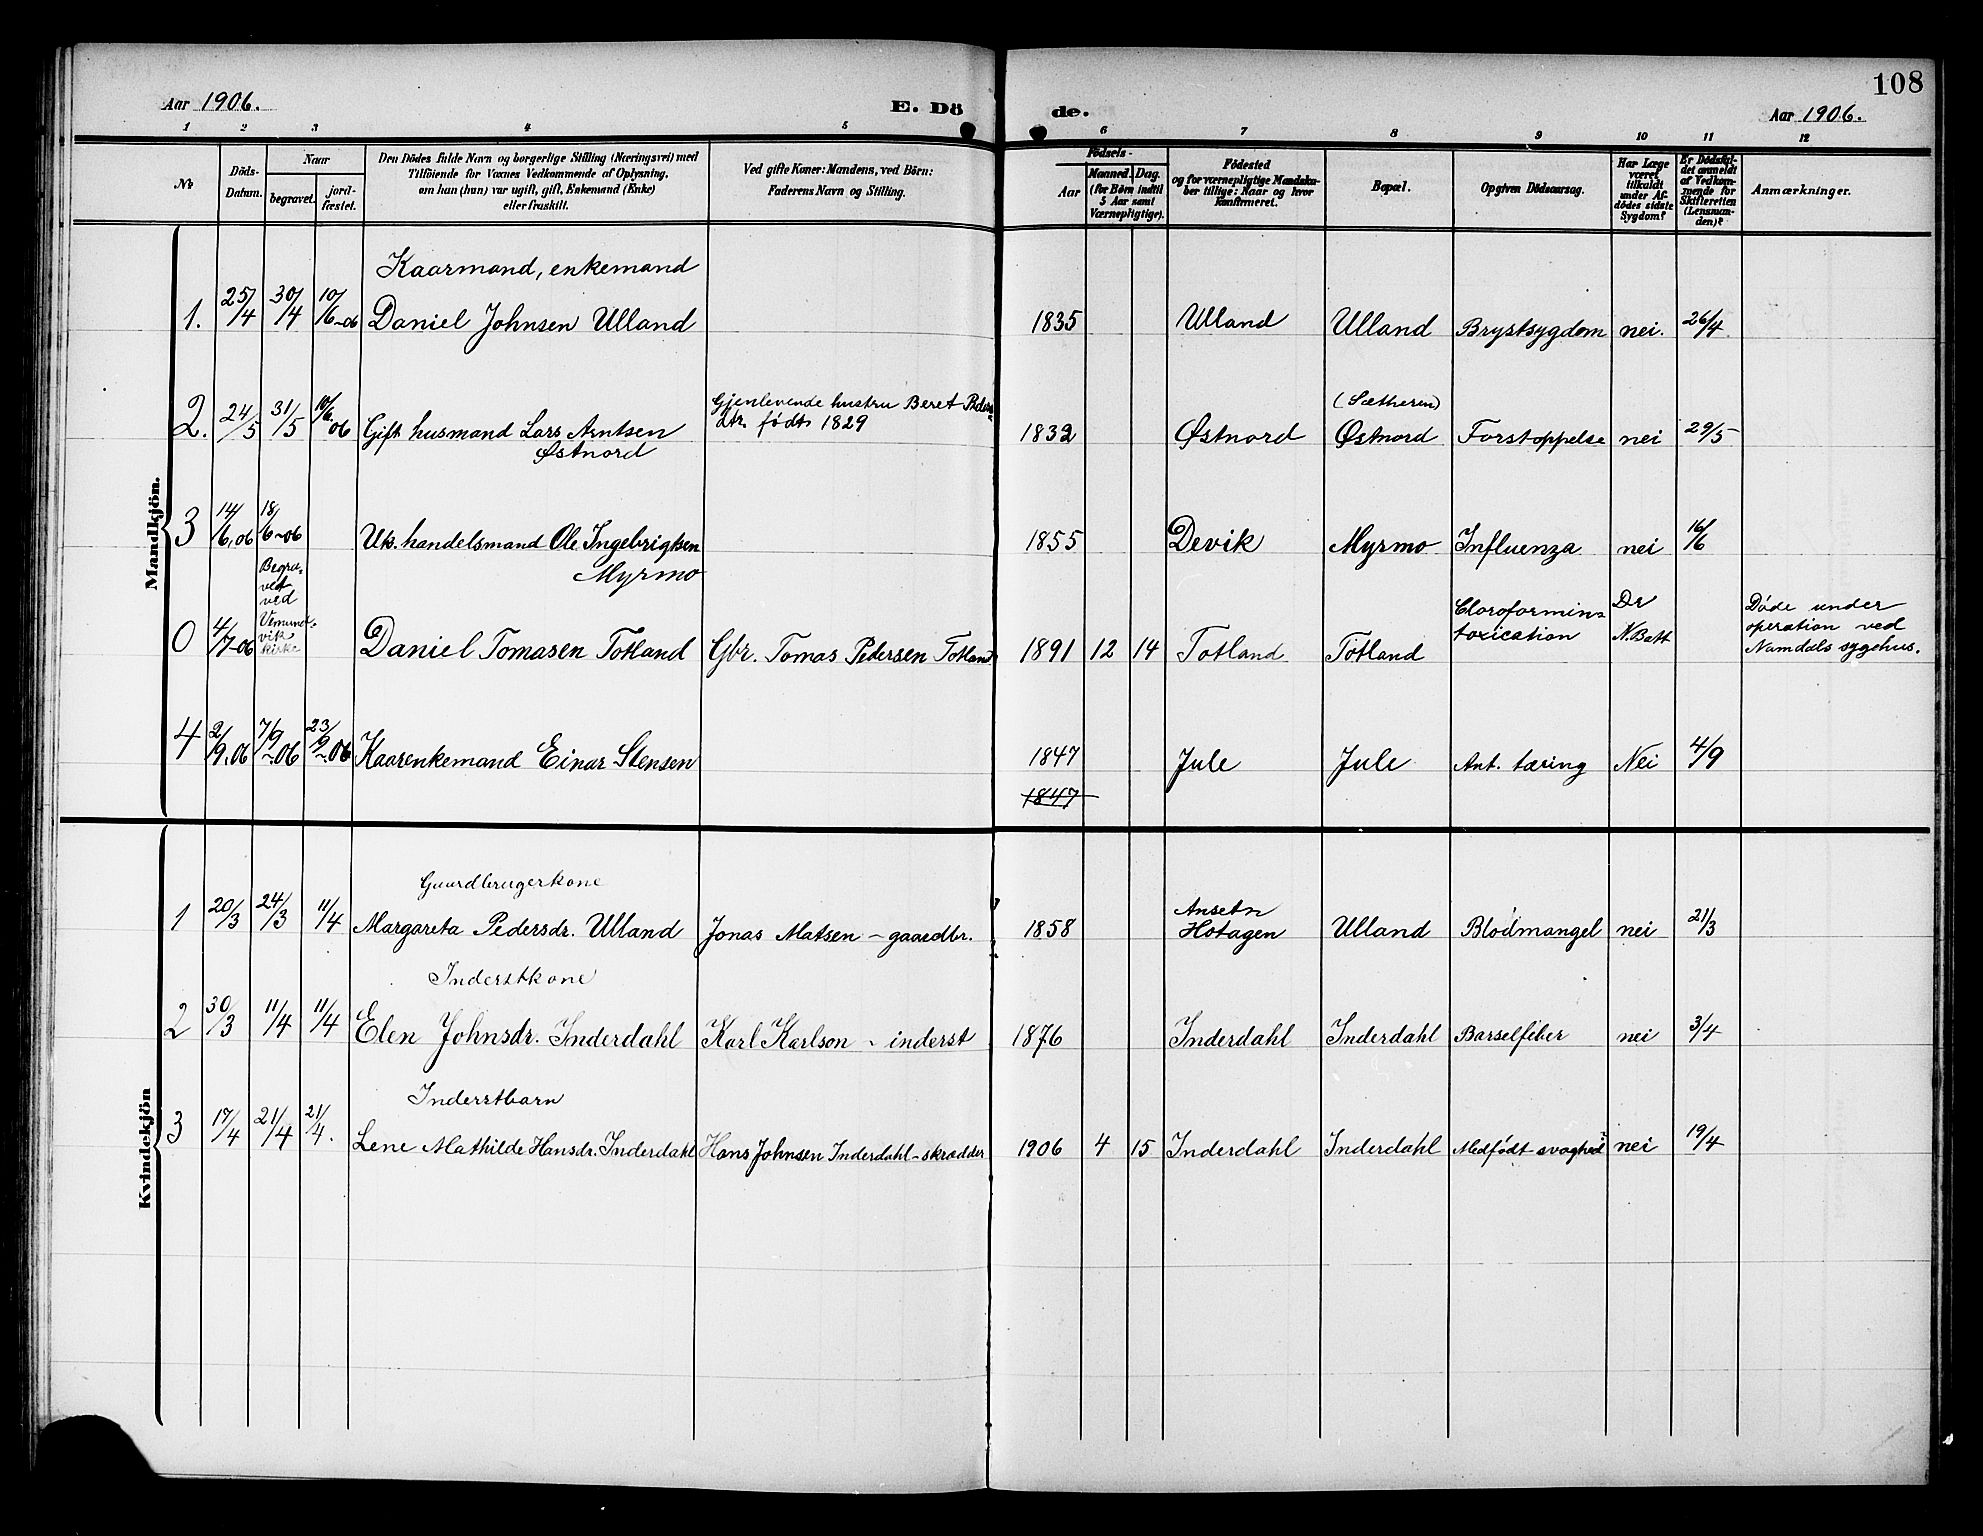 108
Aar 1906. E. Dö de. Aar 1906.
1 2 3 4 5 6 7 8 9 10 11 12
No
Döds-Datum.
Naar
begravet.
jord-fæstet.
Den Dödes fulde Navn og borgerlige Stilling (Næringsvei) med
Tilföiende for Voxnes Vedkommende af Oplysning,
om han (hun) var ugift, gift, Enkemand (Enke)
eller fraskilt.
Ved gifte Koner: Mandens, ved Börn:
Faderens Navn og Stilling.
Födsels-
Aar
Maaned. Dag.
(for Börn indtil
5 Aar samt
Værnepligtige).
Födested
og for værnepligtige Mandska-
ber tillige: Naar og hvor
Konfirmeret.
Bopæl.
Opgiven Dödsaarsag.
Har Læge
været
tilkaldt
under Af-
dödes sidste
Sygdom?
Er Dödsfal-
det anmeldt
af Vedkom-
mende for
Skifteretten
(Lensman-
den)?
Anmærkninger.
Mandkjön.
Kaarmand, enkemand
1. 25/4 30/4 10/6-06 Daniel Johnsen Ulland 1835 Ulland Ulland Brystsygdom nei. 26/4
Gjenlevende hustru Beret Peders= (Sætheren)
2. 24/5 31/5 10/6 06 Gift husmand Lars Arntsen dtr. født 1829 1832 Østnord Østnord Forstoppelse nei 29/5
Østnord
3 14/6.06 18/6-06 Uts. handelsmand Ole Ingebrigtsen 1855 Devik Myrmo Influenza nei 16/6
Myrmo
Begra-
vet
ved
Vemund-
vik
kirke
0 4/7-06 Daniel Tomasen Totland Gbr. Tomas Pedersen Totland 1891 12 14 Totland Totland
Cloroformin=
toxication
Dr
N. Batt
Døde under
operation ved
Namdals sygehus.
4 2/9.06 7/9-06 23/9-06 Kaarenkemand Einar Stensen 1847 Jule Jule Ant. tæring Nei 4/9
1847
Kvindekjön
Gaardbrugerkone
1 20/3 24/3 11/4 Margareta Pedersdr. Ulland Jonas Matsen - gaardbr. 1858 Hotagen Ulland Blodmangel nei 21/3
Inderstkone
2 30/3 11/4 11/4 Elen Johnsdr. Inderdahl Karl Karlson - inderst 1876 Inderdahl Inderdahl Barselfeber nei 3/4
Inderstbarn
3 17/4 21/4 21/4. Lene Mathilde Hansdr. Inderdahl Hans Johnsen Inderdahl - skrædder 1906 4 15 Inderdahl Inderdahl Medfødt svaghed nei 19/4